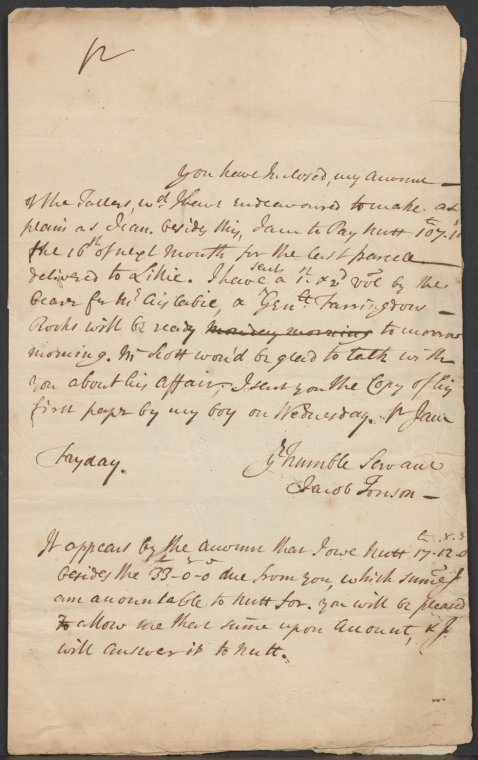 Sr
You have Inclosed, my Account
of the Tatlers, wch I have endeavoured to make as
plain as I can. besides this, I am to Pay Nutt 107-1
the 16th of next month for the last parcell
delivered to Lillie. I have sent a 1st & 2d vol by the
bearer for Mr Aislabie, & Genll Farringdons
Books will be ready monday morning to morrow
morning. Mr Scott wou'd be glad to talk with
you about his affair, I sent you the Copy of his
first paper by my boy on Wednesday. Sr I am
Fryday. Yr humble Servant
Jacob Tonson
It appears by the account that I owe Nutt 17-12-0
besides the 33-0-0 due from you, which summe I
am accountable to Nutt for. you will be pleased
To allow me that summe upon Account, & I
will answer it to Nutt.